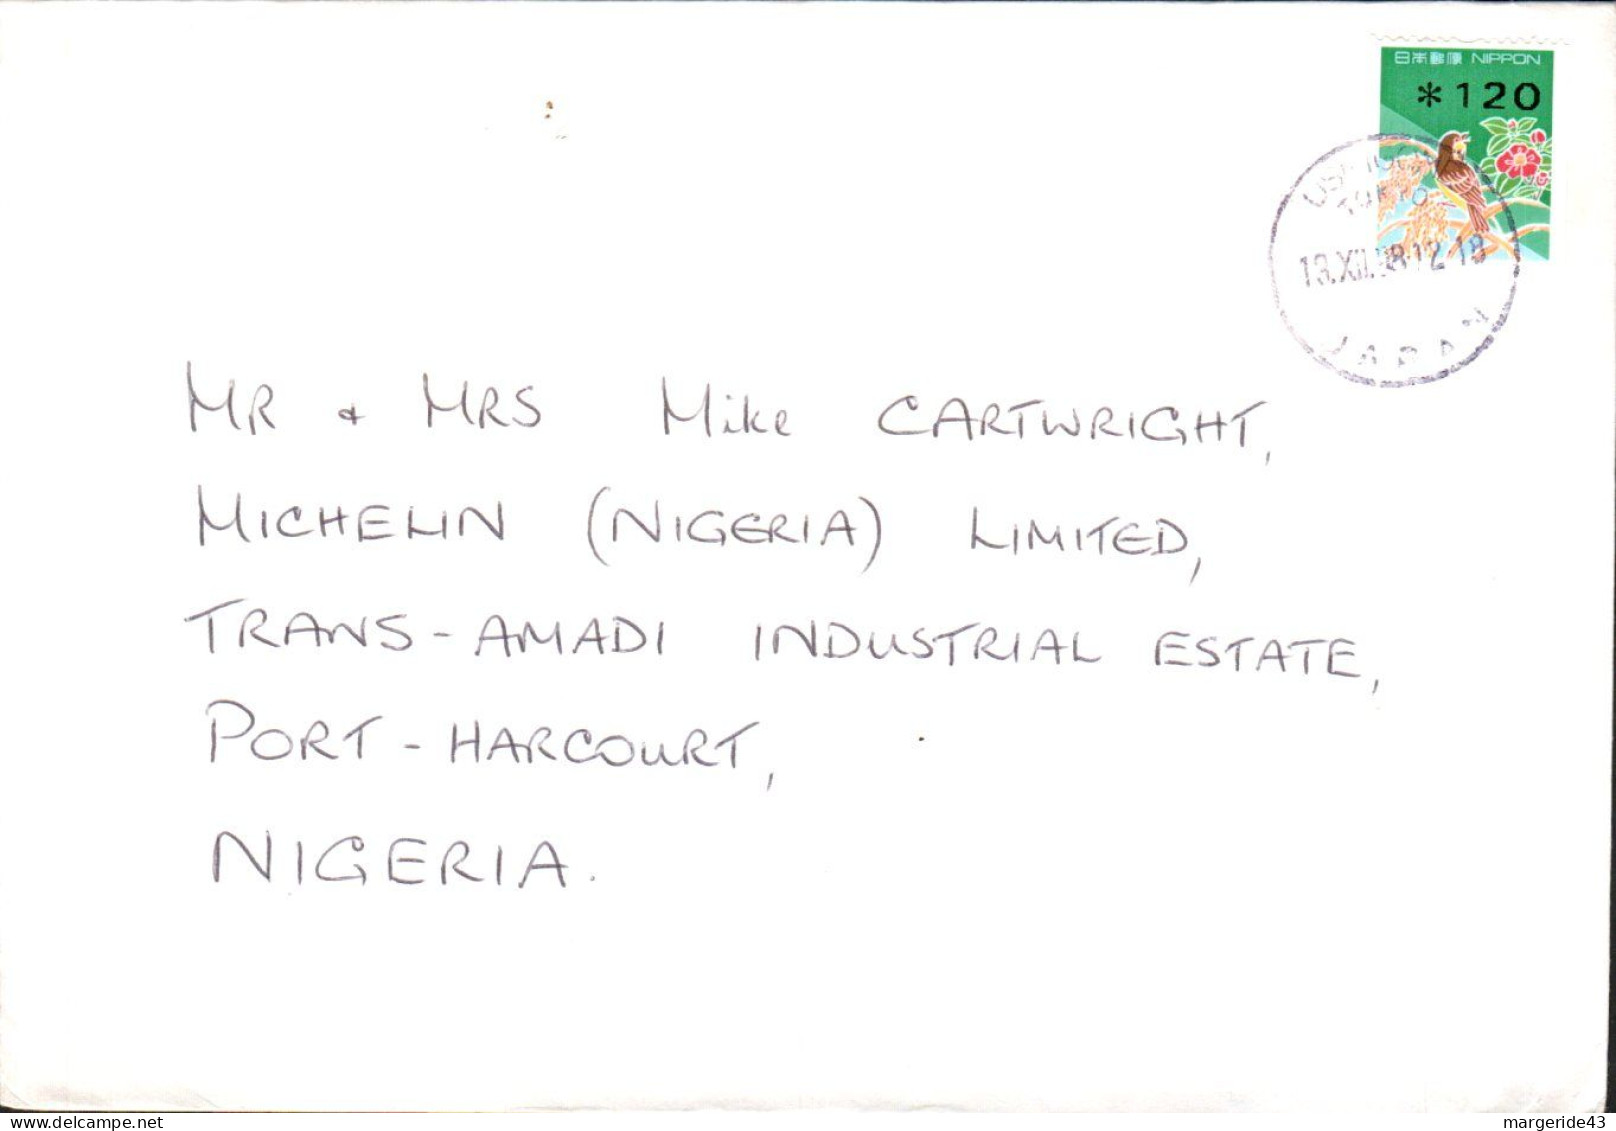 日本郵便 NIPPON
*120
TOKYO
13.XII.98 12-18
JAPAN
MR + MRS Mike CARTWRIGHT,
MICHELIN (NIGERIA) LIMITED,
TRANS-AMADI INDUSTRIAL ESTATE,
PORT-HARCOURT,
NIGERIA.
delcampe.net
margeride43